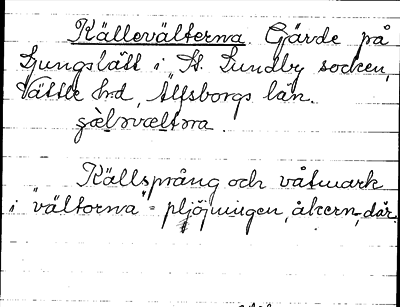 Källevälterna. Gärde på
Ljungslätt i St. Lundby socken,
Vättle hd, Älfsborgs län.
Källsprång och våtmark
i "vältorna" = plöjningen, åkern, där.